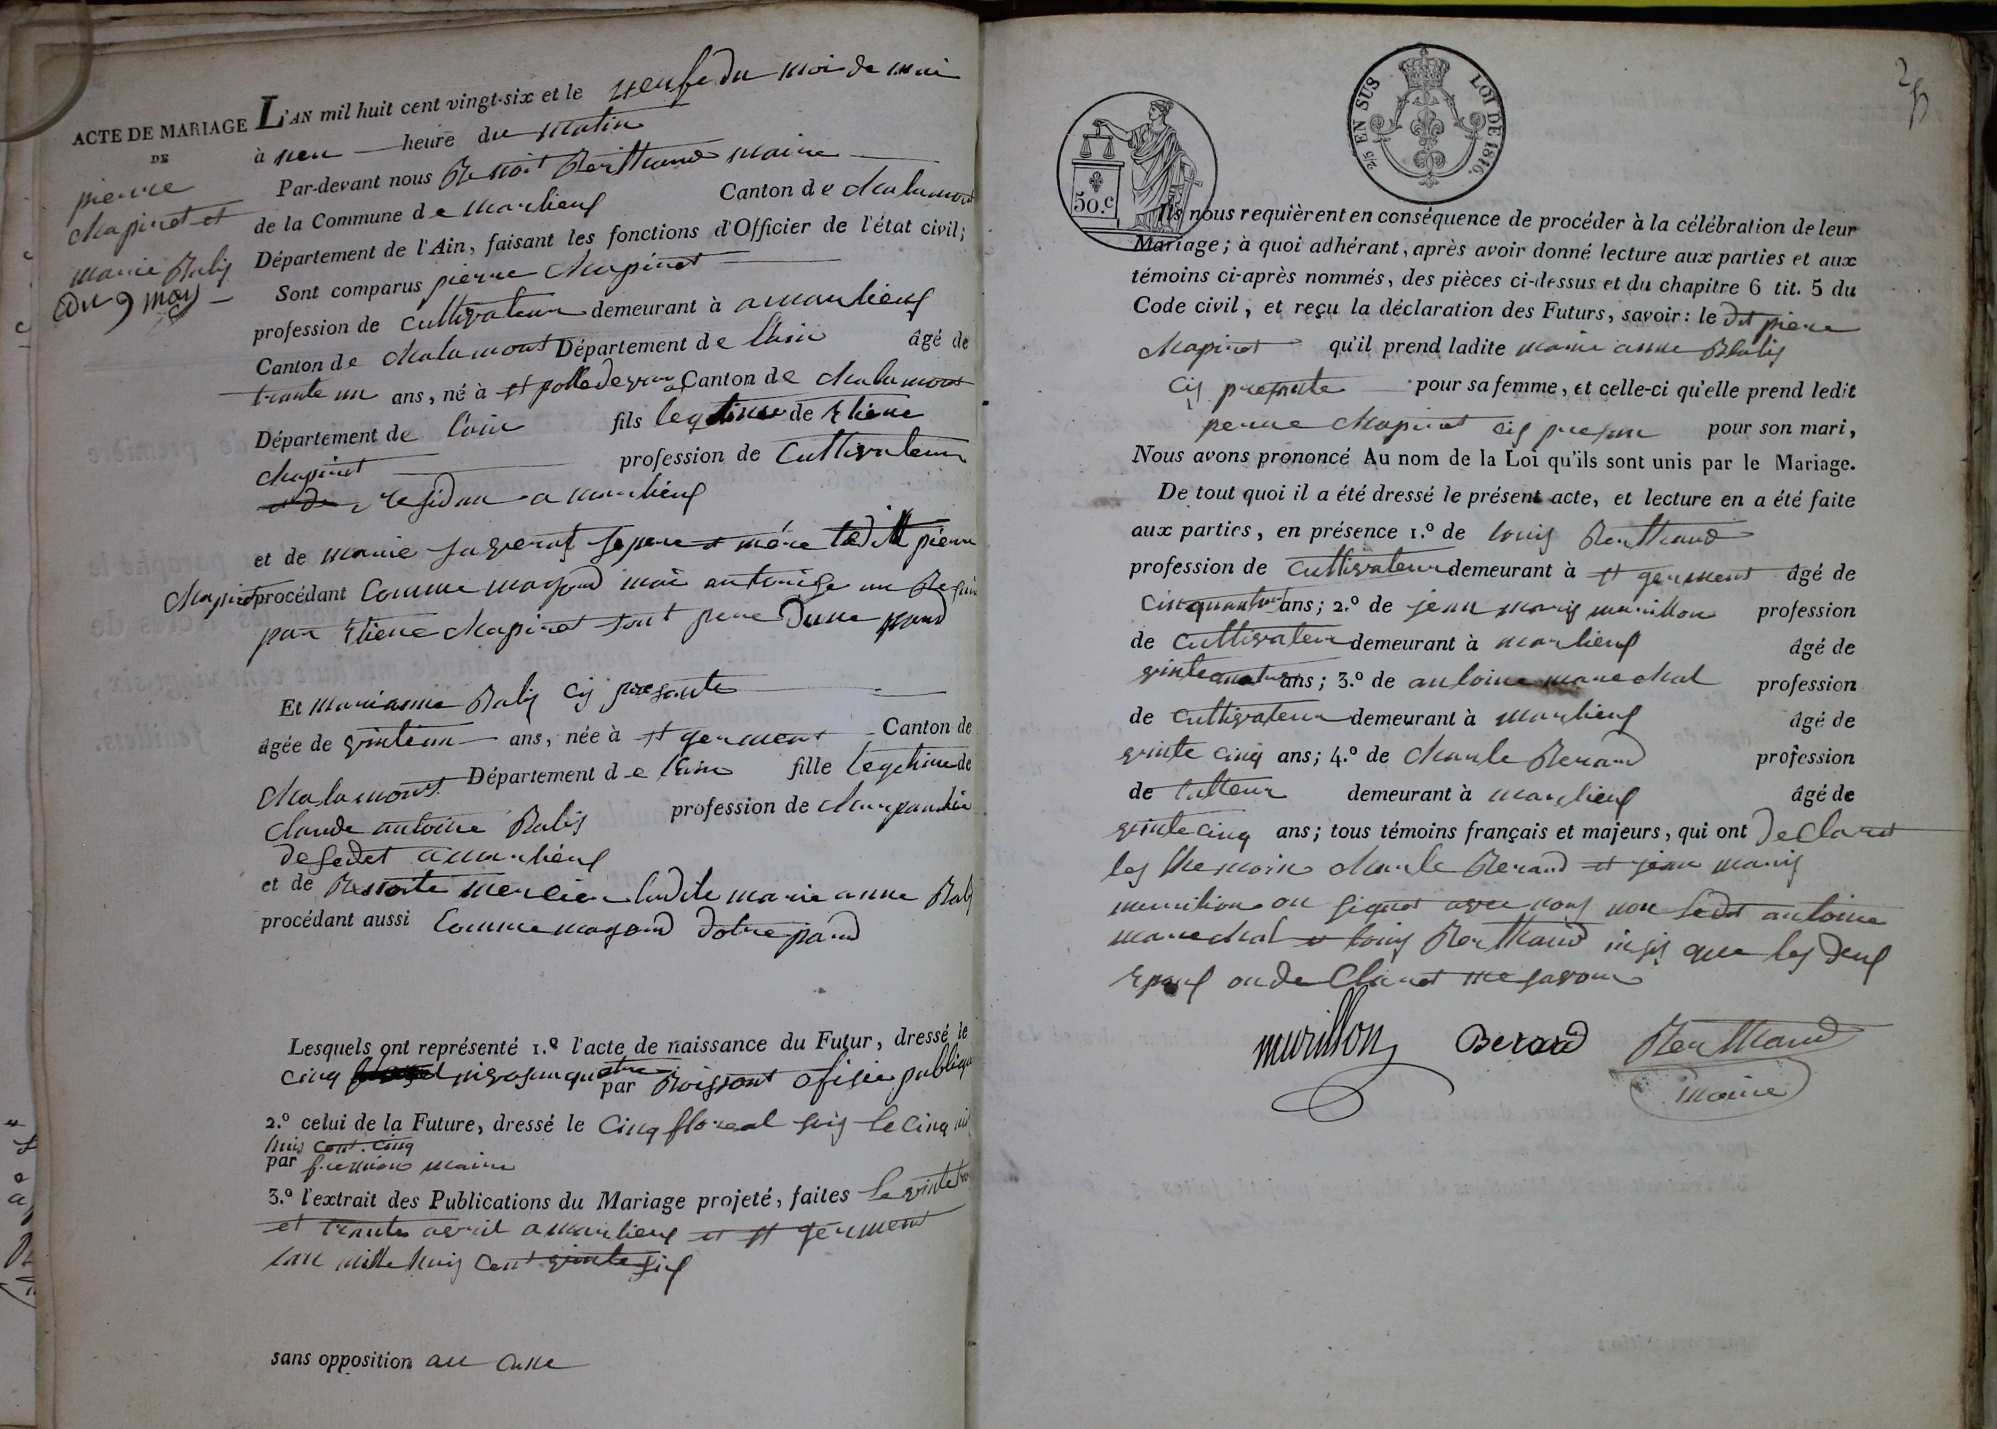 ACTE DE MARIAGE
DE
pierre
Chapinet et
marie Balis
Du 9 may
L'AN mil huit cent vingt-six et le neufe du moi de mai
à neu heure du matin
Par-devant nous Benoit Berthaud maire
de la Commune de marlieux Canton de Chalamont
Département de l'Ain, faisant les fonctions d'Officier de l'état civil;
Sont comparus pierre Chapinet
profession de Cultivateur demeurant à a marlieux
Canton de Chalamont Département de l'Ain âgé de
trante un ans, né à st Canton de Chalamont
Département de l'ain fils legitime de Etiene
Chapinet profession de Cultivateur
residan a marlieux
et de marie le pere et mére ledit pierre
Chapinet procédant Comme magond
par Etiene Chapinet sont pere Dune pard
Et marianne Balis cis presante
âgée de vinteun ans, née à st germent Canton de
Chalamont Département de l'Ain fille legitime de
Claude antoine Balis profession de
a marlieux
et de Benoite mercier ladite marie anne Balis
procédant aussi Comme magond Dotre pard
Lesquels ont représenté 1.º l'acte de naissance du Futur, dressé le
Cinq par Boissont publique
2.º celui de la Future, dressé le Cinq floreal le Cinq mil
huis cent cinq
par maire
3.º l'extrait des Publications du Mariage projeté, faites le vinte trois
et trante avril a marlieux et st germent
lan mille huis cent vinte six
sans opposition au cune
50.c
2/5 EN SUS LOI DE 1816.
25
Ils nous requièrent en conséquence de procéder à la célébration de leur
Mariage; à quoi adhérant, après avoir donné lecture aux parties et aux
témoins ci-après nommés, des pièces ci-dessus et du chapitre 6 tit. 5 du
Code civil, et reçu la déclaration des Futurs, savoir: le dit pierre
Chapinet qu'il prend ladite marie anne Balis
cis presante pour sa femme, et celle-ci qu'elle prend ledit
pierre Chapinet cis presan pour son mari,
Nous avons prononcé Au nom de la Loi qu'ils sont unis par le Mariage.
De tout quoi il a été dressé le présent acte, et lecture en a été faite
aux parties, en présence 1.º de louis Berthaud
profession de Cultivateur demeurant à st germent âgé de
ans; 2.º de jean maris murillon profession
de Cultivateur demeurant à marlieux âgé de
vinte quatre ans; 3.º de antoine marechal profession
de Cultivateur demeurant à marlieux âgé de
vinte cinq ans; 4.º de Charle Berard profession
de demeurant à marlieux âgé de
vinte cinq ans; tous témoins français et majeurs, qui ont Declaret
les themoin Charle Berard et jean maris
murillion on signet avec nous non ledit antoine
marechal et louis Berthaud insis que les deux
Epoux on de Claret ne savoir
murillon Berard Berthaud
maire